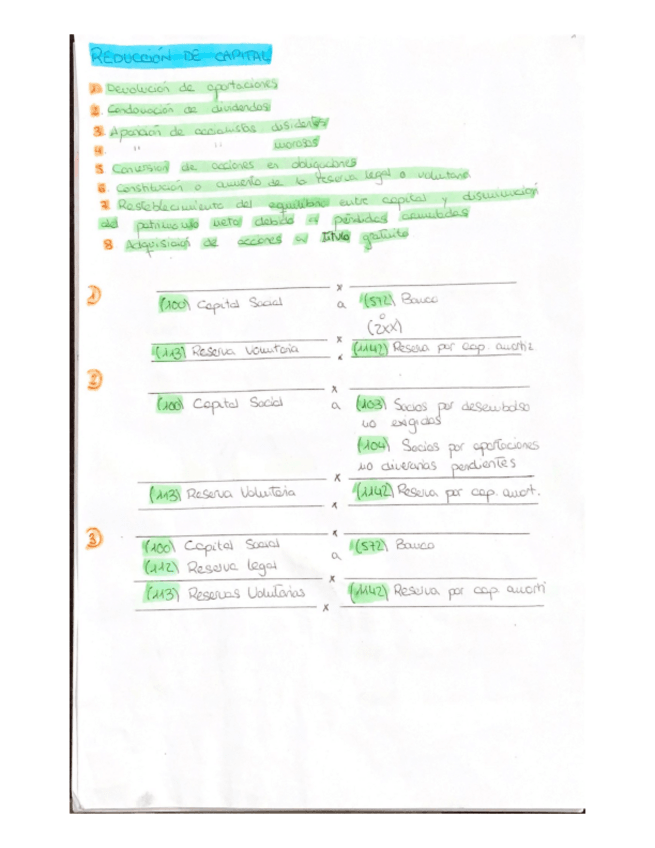 REDUCCIÓN DE CAPITAL
1. Devolución de aportaciones
2. Condonación de dividendos
3. Aparición de accionistas disidentes
4. " " morosos
5. Conversión de acciones en obligaciones
6. Constitución o aumento de la reserva legal o voluntaria
7. Restablecimiento del equilibrio entre capital y disminución
del patrimonio neto debido a pérdidas acumuladas
8. Adquisición de acciones a título gratuito
1) x
(100) Capital Social a (572) Banco
o
(2xx)
x
(113) Reserva voluntaria (1142) Reserva por cap. amortiz
x
2) x
(100) Capital Social a (103) Socios por desembolso
no exigidos
(104) Socios por aportaciones
no dinerarias pendientes
x
(113) Reserva Voluntaria (1142) Reserva por cap. amort.
x
3) x
(100) Capital Social a (572) Banco
(112) Reserva legal
x
(113) Reservas Voluntarias (1142) Reserva por cap. amorti
x